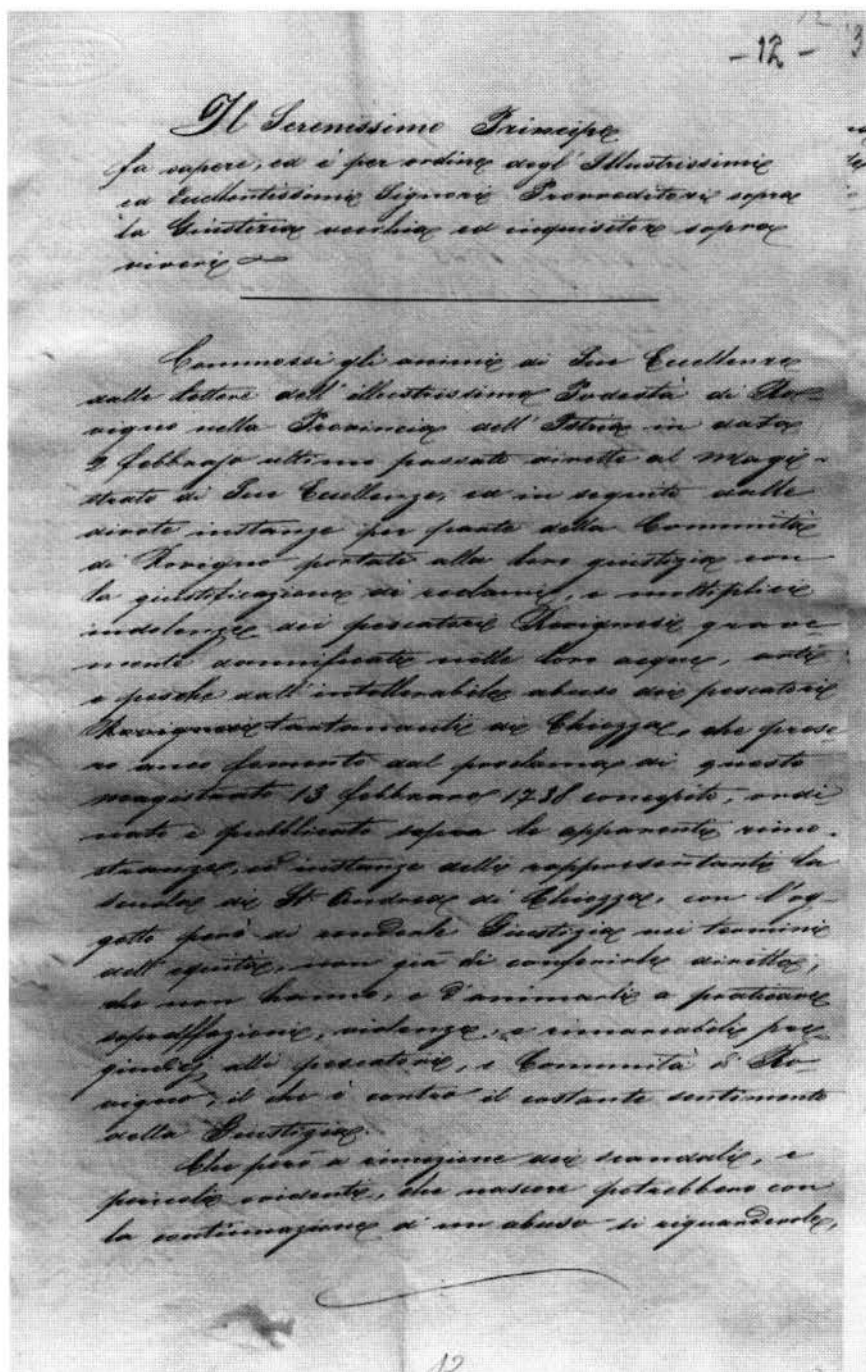 - 12 - 3
Il Serenissimo Principe
fa sapere, ed è per ordine degl' Illustrissimi
ed Eccellentissimi Signori Provveditori sopra
la Giustizia vecchia ed inquisitore sopra
viveri
Commossi gli animi di Sue Eccellenze
dalle lettere dell' illustrissimo Podestà di Ro-
vigno nella Provincia dell' Istria in data
2 febbrajo ultimo passato dirette al Magi-
strato di Sue Eccellenze, ed in seguito dalle
divote instanze per parte della Comunità
di Rovigno portate alla loro giustizia con
la giustificazione di reclami, e moltiplici
indolenze dei pescatori Rovignesi grave
mente dannificati nelle loro acque, arti
e pesche dall' intollerabile abuso dei pescatori
Rovignesi tartananti di Chiozza, che prese-
ro anco fomento dal proclama di questo
magistrato 13 febbraro 1738 concepito, ordi
nato e pubblicato sopra le apparenti rimo-
stranze, ed instanze delli rappresentanti la
scuola di St Andrea di Chiozza, con l'og-
getto però di renderle Giustizia nei termini
dell' equità, non già di conferirle diritto,
che non hanno, e d'animarli a praticare
sopraffazioni, violenze, e rimarcabili pre-
giudizj alli pescatori, e Comunità di Ro-
vigno, il che è contro il costante sentimento
della Giustizia.
Che però a rimozione dei scandali, e
pericoli evidenti, che nascere potrebbero con
la continuazione d' un abuso si riguardevole,
12